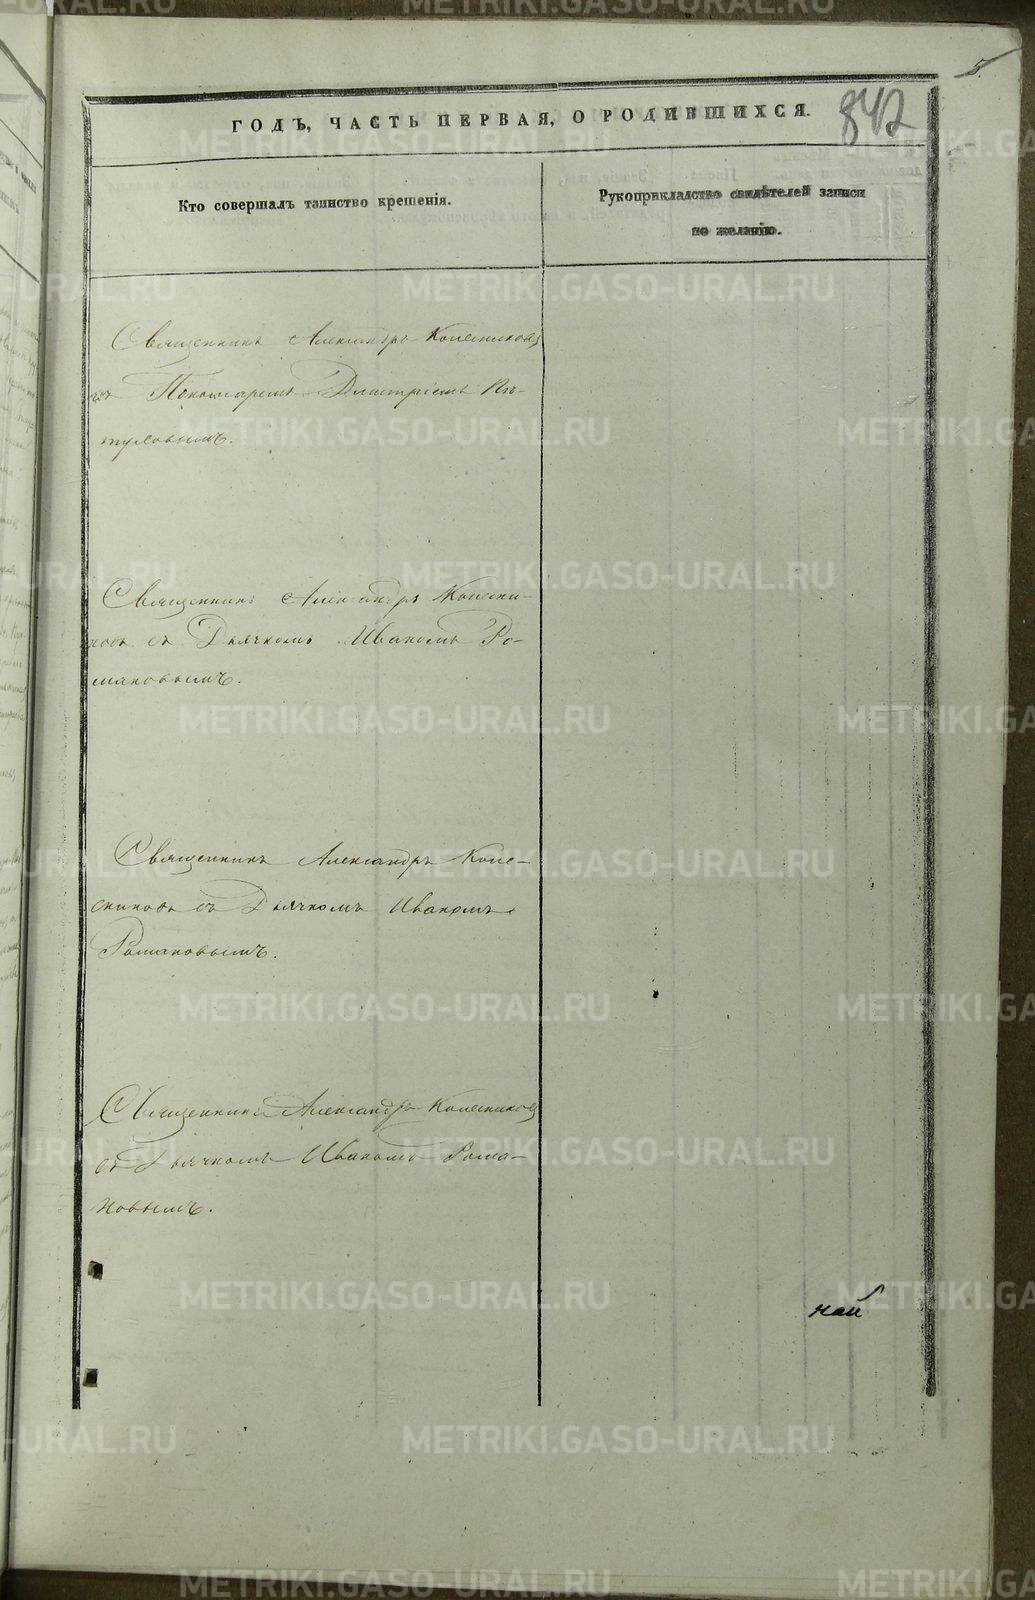 5.
842
ГОДЪ, ЧАСТЬ ПЕРВАЯ, О РОДИВШИХСЯ.
Кто совершалъ таинство крещенія.
Рукоприкладство свидѣтелей записи
по желанію.
Священникъ Александръ Колесниковъ
съ Пономаремъ Димитріемъ
Священникъ Александръ Колесни-
ковъ съ Дьячкомъ Иваномъ Ро-
мановымъ.
Священникъ Александръ Коле-
сниковъ съ Дьячкомъ Иваномъ
Романовымъ.
Священникъ Александръ Колесниковъ
съ Дьячкомъ Иваномъ Рома-
новымъ.
METRIKI.GASO-URAL.RU